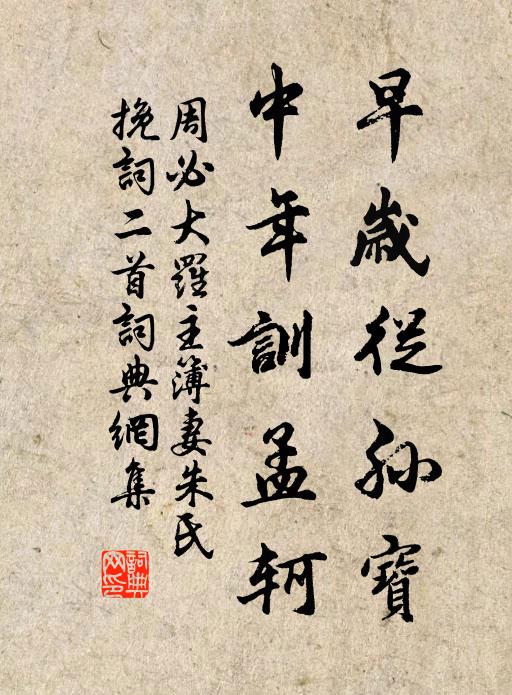 早歲從孫寶
中年訓孟軻
周必大羅主簿妻朱氏
挽詞二首詞典網集
詞典
网印